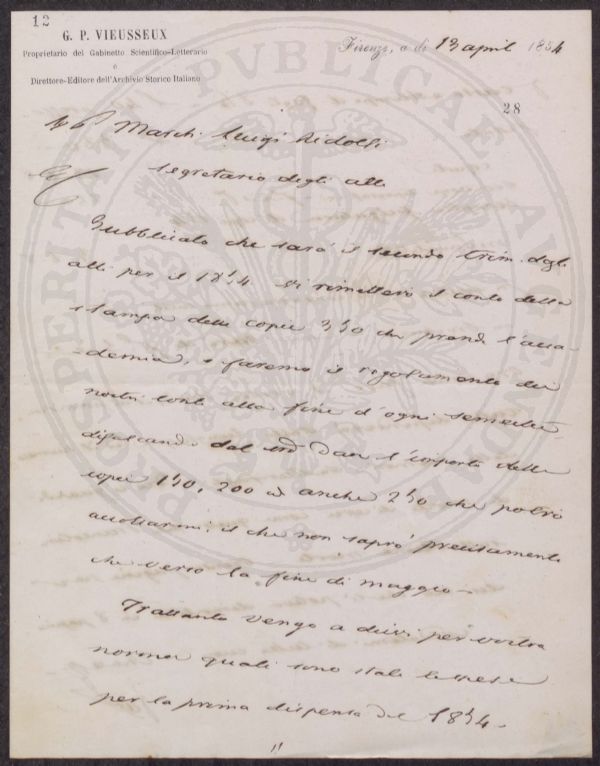 12
G. P. VIEUSSEUX
Proprietario del Gabinetto Scientifico-Letterario
e
Direttore-Editore dell'Archivio Storico Italiano
Firenze, a dì 13 april 1854
28
March. Luigi Ridolfi
Segretario degli atti
Pubblicato che sarà il secondo trim. degli
atti per il 1854 vi rimetterò il conto della
stampa delle copie 350 che prende l'acca-
demia, e faremo il regolamento dei
nostri conti alla fine d'ogni semestre
difalcando dal dare l'importo delle
copie 150, 200 o anche 250 che potrò
accollarmi; il che non saprò precisamente
che verso la fine di maggio.
Trattanto vengo a dirvi per vostra
norma quali sono state le spese
per la prima dispensa del 1854.
PUBLICAE PROSPERITATI AUGENDAE